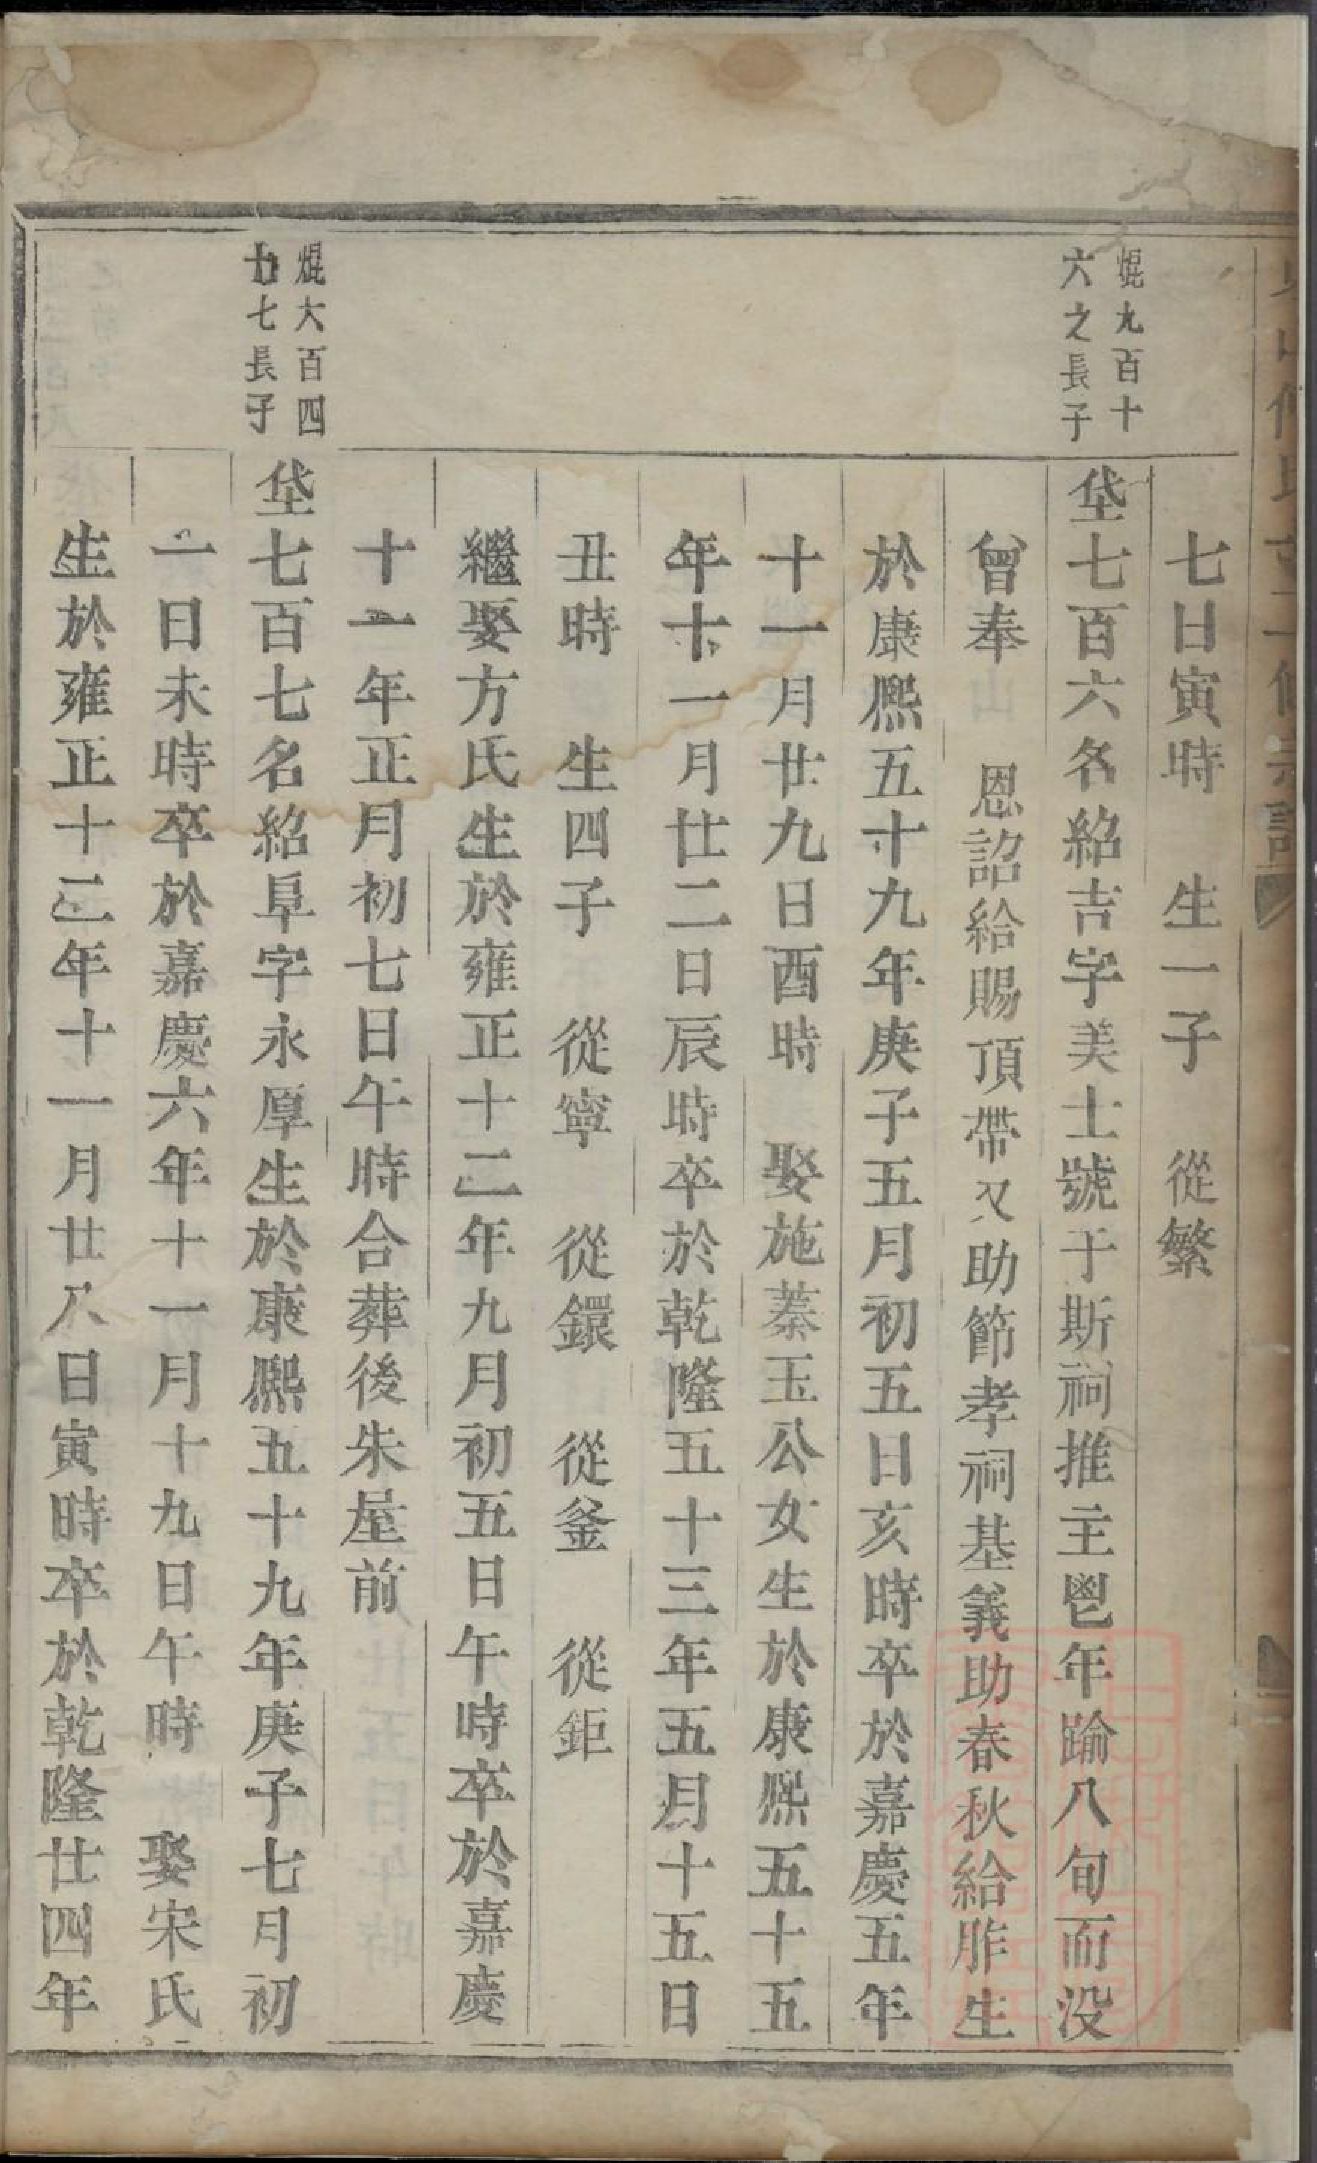 七日寅時　生一子　從繁
焜九百十
六之長子
坒七百六名紹吉字美士號于斯祠推主鬯年踰八旬而沒
曾奉　恩詔給賜頂帶又助節孝祠基義助春秋給胙生
於康熙五十九年庚子五月初五日亥時卒於嘉慶五年
十一月廿九日酉時　娶施蓁玉公女生於康熙五十五
年十一月廿二日辰時卒於乾隆五十三年五月十五日
丑時　生四子　從寧　從鐶　從釜　從鉅
繼娶方氏生於雍正十二年九月初五日午時卒於嘉慶
十一年正月初七日午時合葬後朱屋前
焜大百四
十七長子
坒七百七名紹阜字永厚生於康熙五十九年庚子七月初
一日未時卒於嘉慶六年十一月十九日午時　娶宋氏
生於雍正十三年十一月廿八日寅時卒於乾隆廿四年